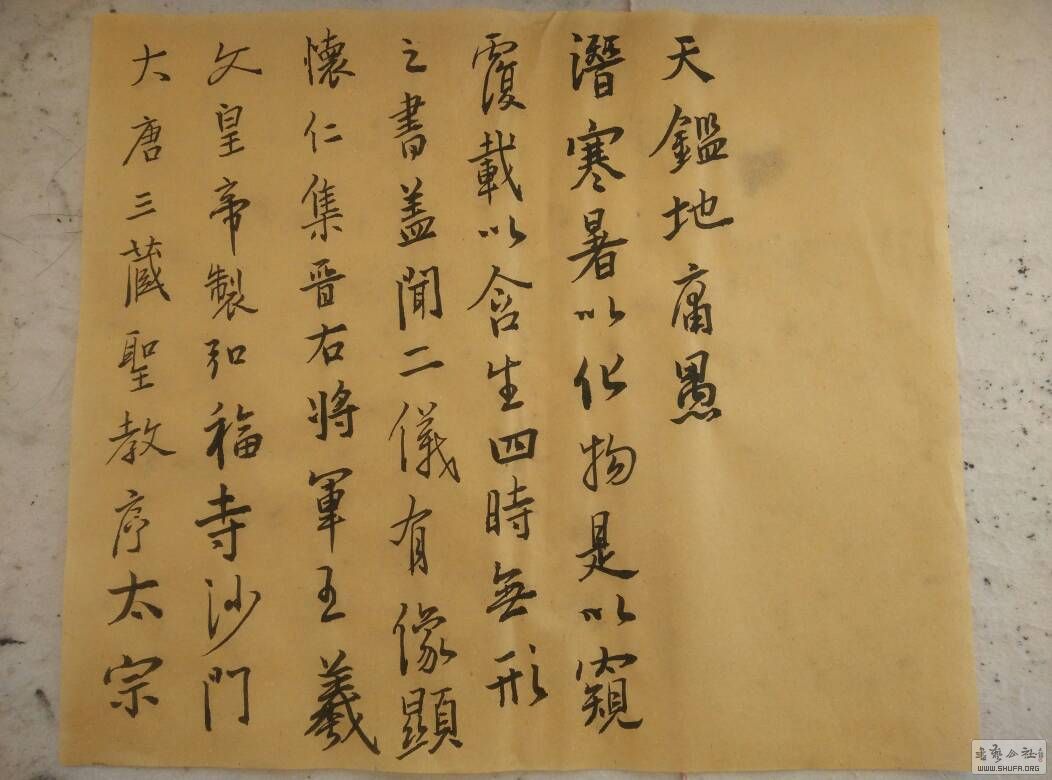 大唐三藏聖教序太宗
文皇帝製弘福寺沙門
懷仁集晉右將軍王羲
之書盖聞二儀有像顯
覆載以含生四時無形
潛寒暑以化物是以窺
天鑑地庸愚
书艺公社
WWW.SHUFA.ORG